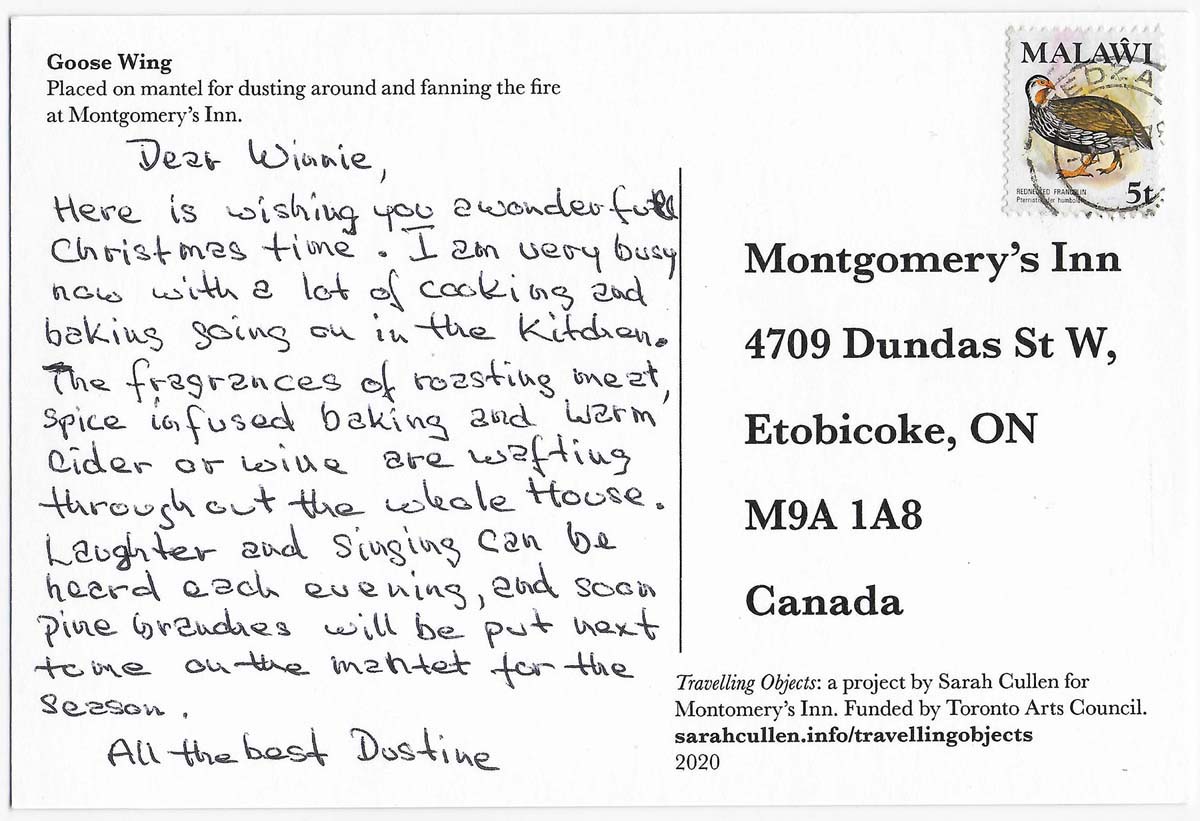 Goose Wing
Placed on mantel for dusting around and fanning the fire
at Montgomery's Inn.
Dear Winnie,
Here is wishing you a wonderful
Christmas time. I am very busy
now with a lot of cooking and
baking going on in the Kitchen.
The fragrances of roasting meat,
spice infused baking and warm
cider or wine are wafting
through out the whole House.
Laughter and Singing can be
heard each evening, and soon
pine branches will be put next
to me on the mantel for the
season.
All the best Dustine
MALAŴI
REDNECKED FRANCOLIN
5t
Montgomery's Inn
4709 Dundas St W,
Etobicoke, ON
M9A 1A8
Canada
Travelling Objects: a project by Sarah Cullen for
Montomery's Inn. Funded by Toronto Arts Council.
sarahcullen.info/travellingobjects
2020